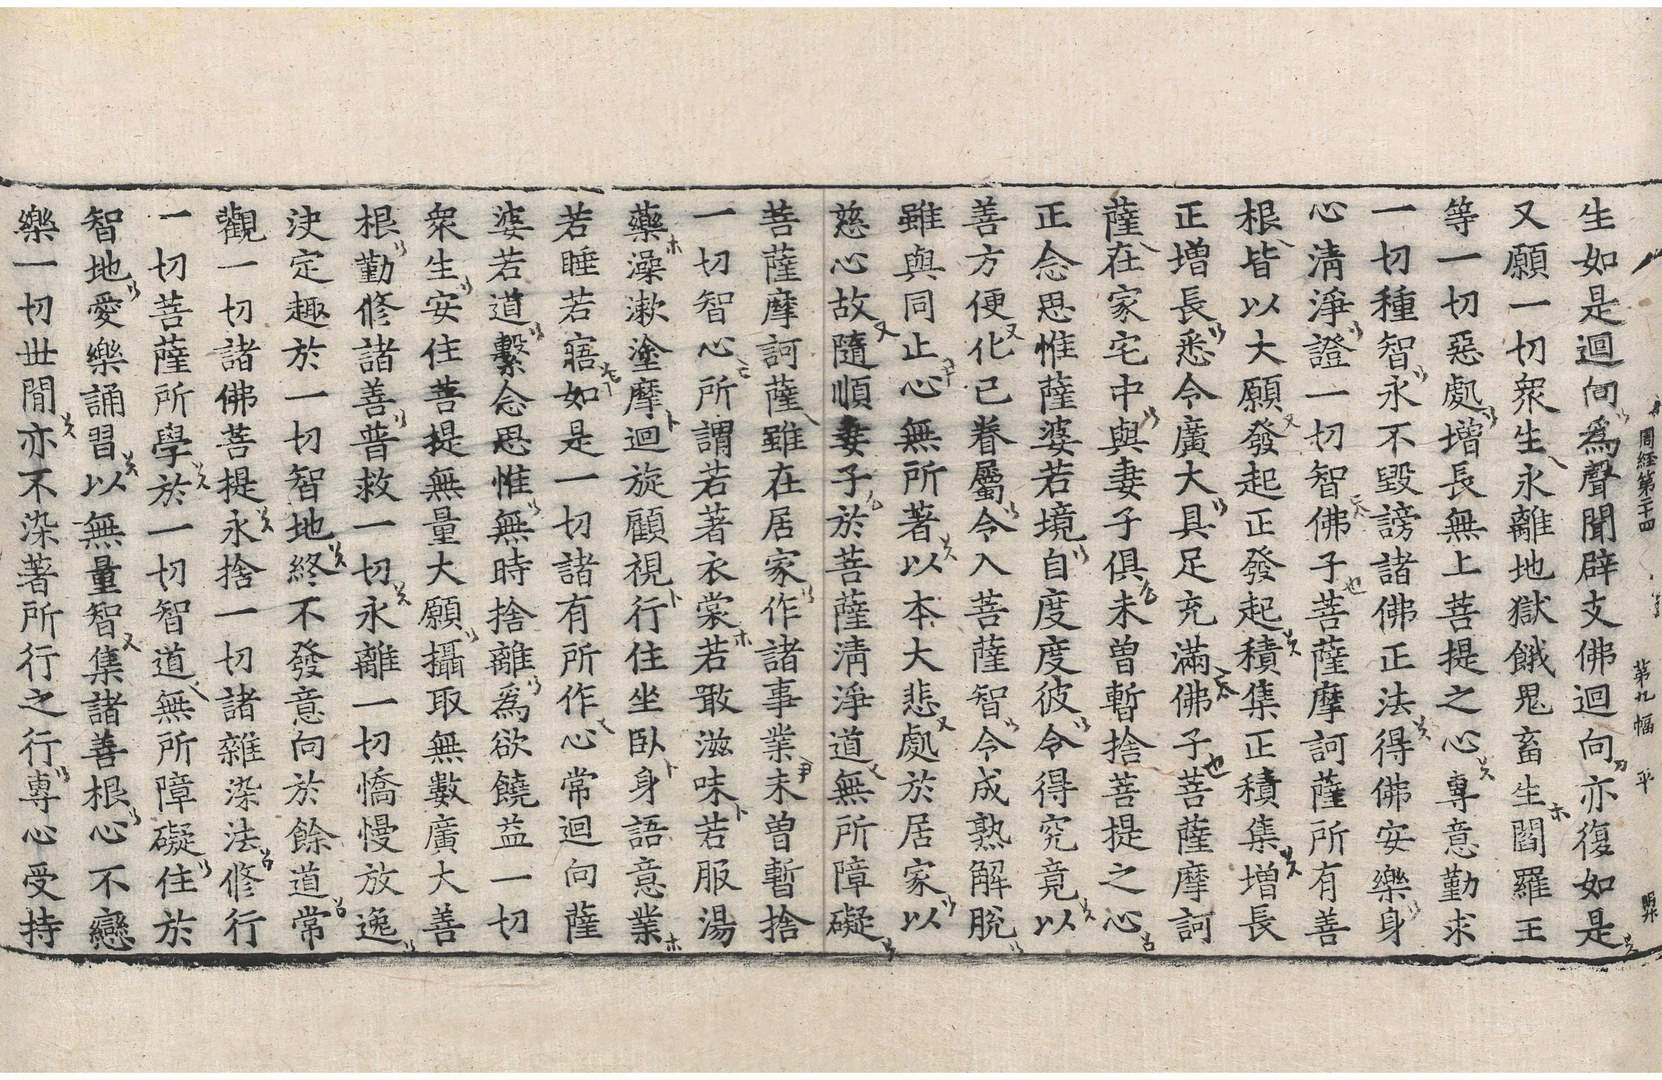 周経第二十四
第九幅
平
生如是迴向為聲聞辟支佛迴向亦復如是
又願一切衆生永離地獄餓鬼畜生閻羅王
等一切惡處增長無上菩提之心專意勤求
一切種智永不毀謗諸佛正法得佛安樂身
心清淨證一切智佛子菩薩摩訶薩所有善
根皆以大願發起正發起積集正積集增長
正增長悉令廣大具足充滿佛子菩薩摩訶
薩在家宅中與妻子俱未曾暫捨菩提之心
正念思惟薩婆若境自度度彼令得究竟以
善方便化己眷屬令入菩薩智令成熟解脫
雖與同止心無所著以本大悲處於居家以
慈心故隨順妻子於菩薩清淨道無所障礙
菩薩摩訶薩雖在居家作諸事業未曾暫捨
一切智心所謂若著衣裳若敢滋味若服湯
藥澡漱塗摩迴旋顧視行住坐臥身語意業
若睡若寤如是一切諸有所作心常迴向薩
婆若道繫念思惟無時捨離為欲饒益一切
衆生安住菩提無量大願攝取無數廣大善
根勤修諸善普救一切永離一切憍慢放逸
決定趣於一切智地終不發意向於餘道常
觀一切諸佛菩提永捨一切諸雜染法修行
一切菩薩所學於一切智道無所障礙住於
智地愛樂誦習以無量智集諸善根心不戀
樂一切世間亦不染著所行之行專心受持